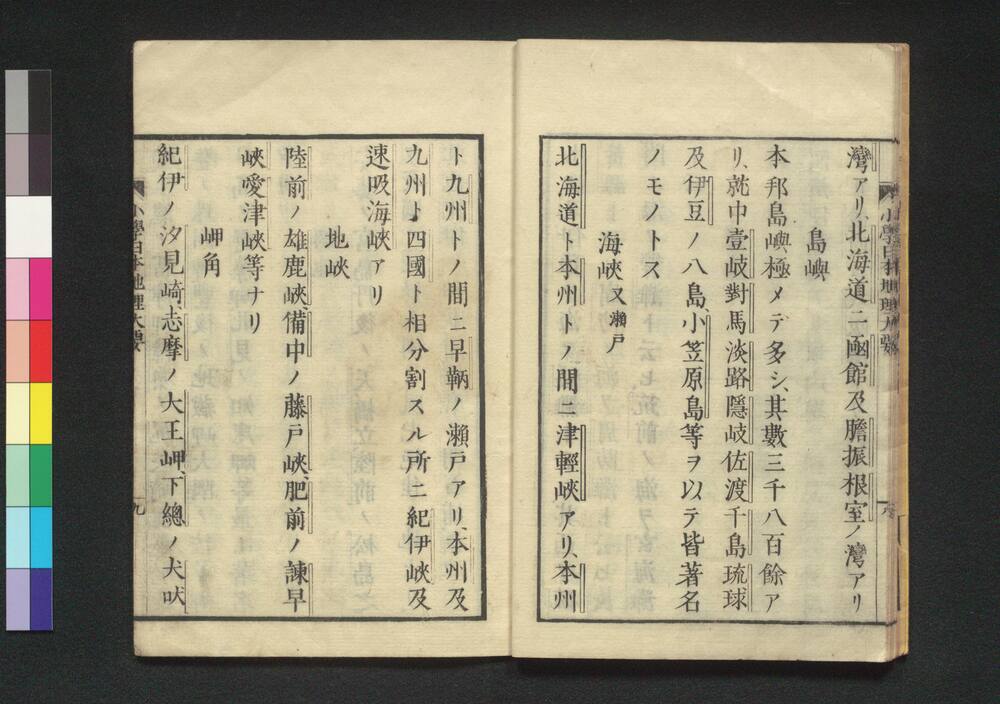 灣アリ、北海道ニ凾館及膽振根室ノ灣アリ
島嶼
本邦島嶼極メテ多シ、其數三千八百餘ア
リ、就中壹岐對馬淡路隱岐佐渡千島琉球
及伊豆ノ八島、小笠原島等ヲ以テ皆著名
ノモノトス
海峽又瀨戸
北海道ト本州トノ間ニ津輕峽アリ、本州
ト九州トノ間ニ早鞆ノ瀨戸アリ、本州及
九州ト四國ト相分割スル所ニ紀伊峽及
速吸海峽アリ
地峽
陸前ノ雄鹿峽、備中ノ藤戸峽、肥前ノ諫早
峽、愛津峽等ナリ
岬角
紀伊ノ汐見崎、志摩ノ大王岬、下總ノ犬吠
小學日本地理大要
九